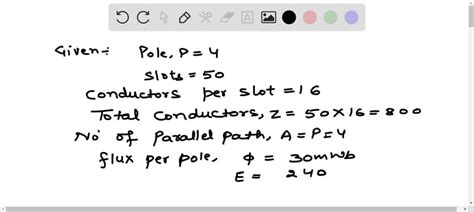 Given:- Pole, P = 4
Slots = 50
Conductors per slot = 16
Total Conductors, Z = 50 X 16 = 800
No of Parallel path, A = P = 4
flux per pole, Φ = 30mwb
E = 240